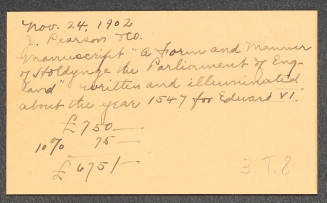 Nov. 24, 1902
J. Pearson & Co.
Manuscript "A Form and Manner
of Holdynge the Parliament of Eng-
land" written and illuminated
about the year 1547 for Edward VI.
£750—
10% 75—
£675/—
3.T.8